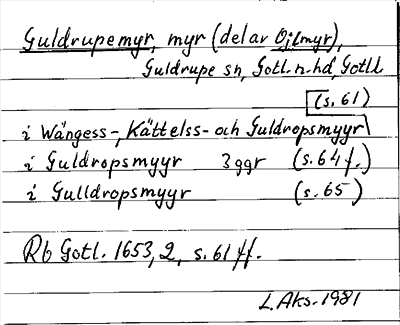 Guldrupemyr, myr (del av Ojlmyr),
Guldrupe sn, Gotl. n. hd, Gotl l
(s. 61)
i Wängess-, Kättelss- och Guldropsmyyr
i Guldropsmyyr 3 ggr (s. 64 f.)
i Gulldropsmyyr (s. 65)
Rb Gotl. 1653, 2, s. 61 ff.
L. Aks. 1981